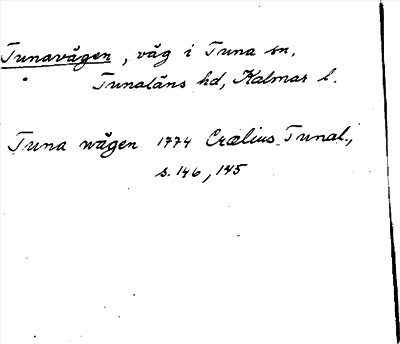 Tunavägen, väg i Tuna sn,
Tunaläns hd, Kalmar l.
Tuna wägen 1774 Crælius Tunal.,
s. 146, 145